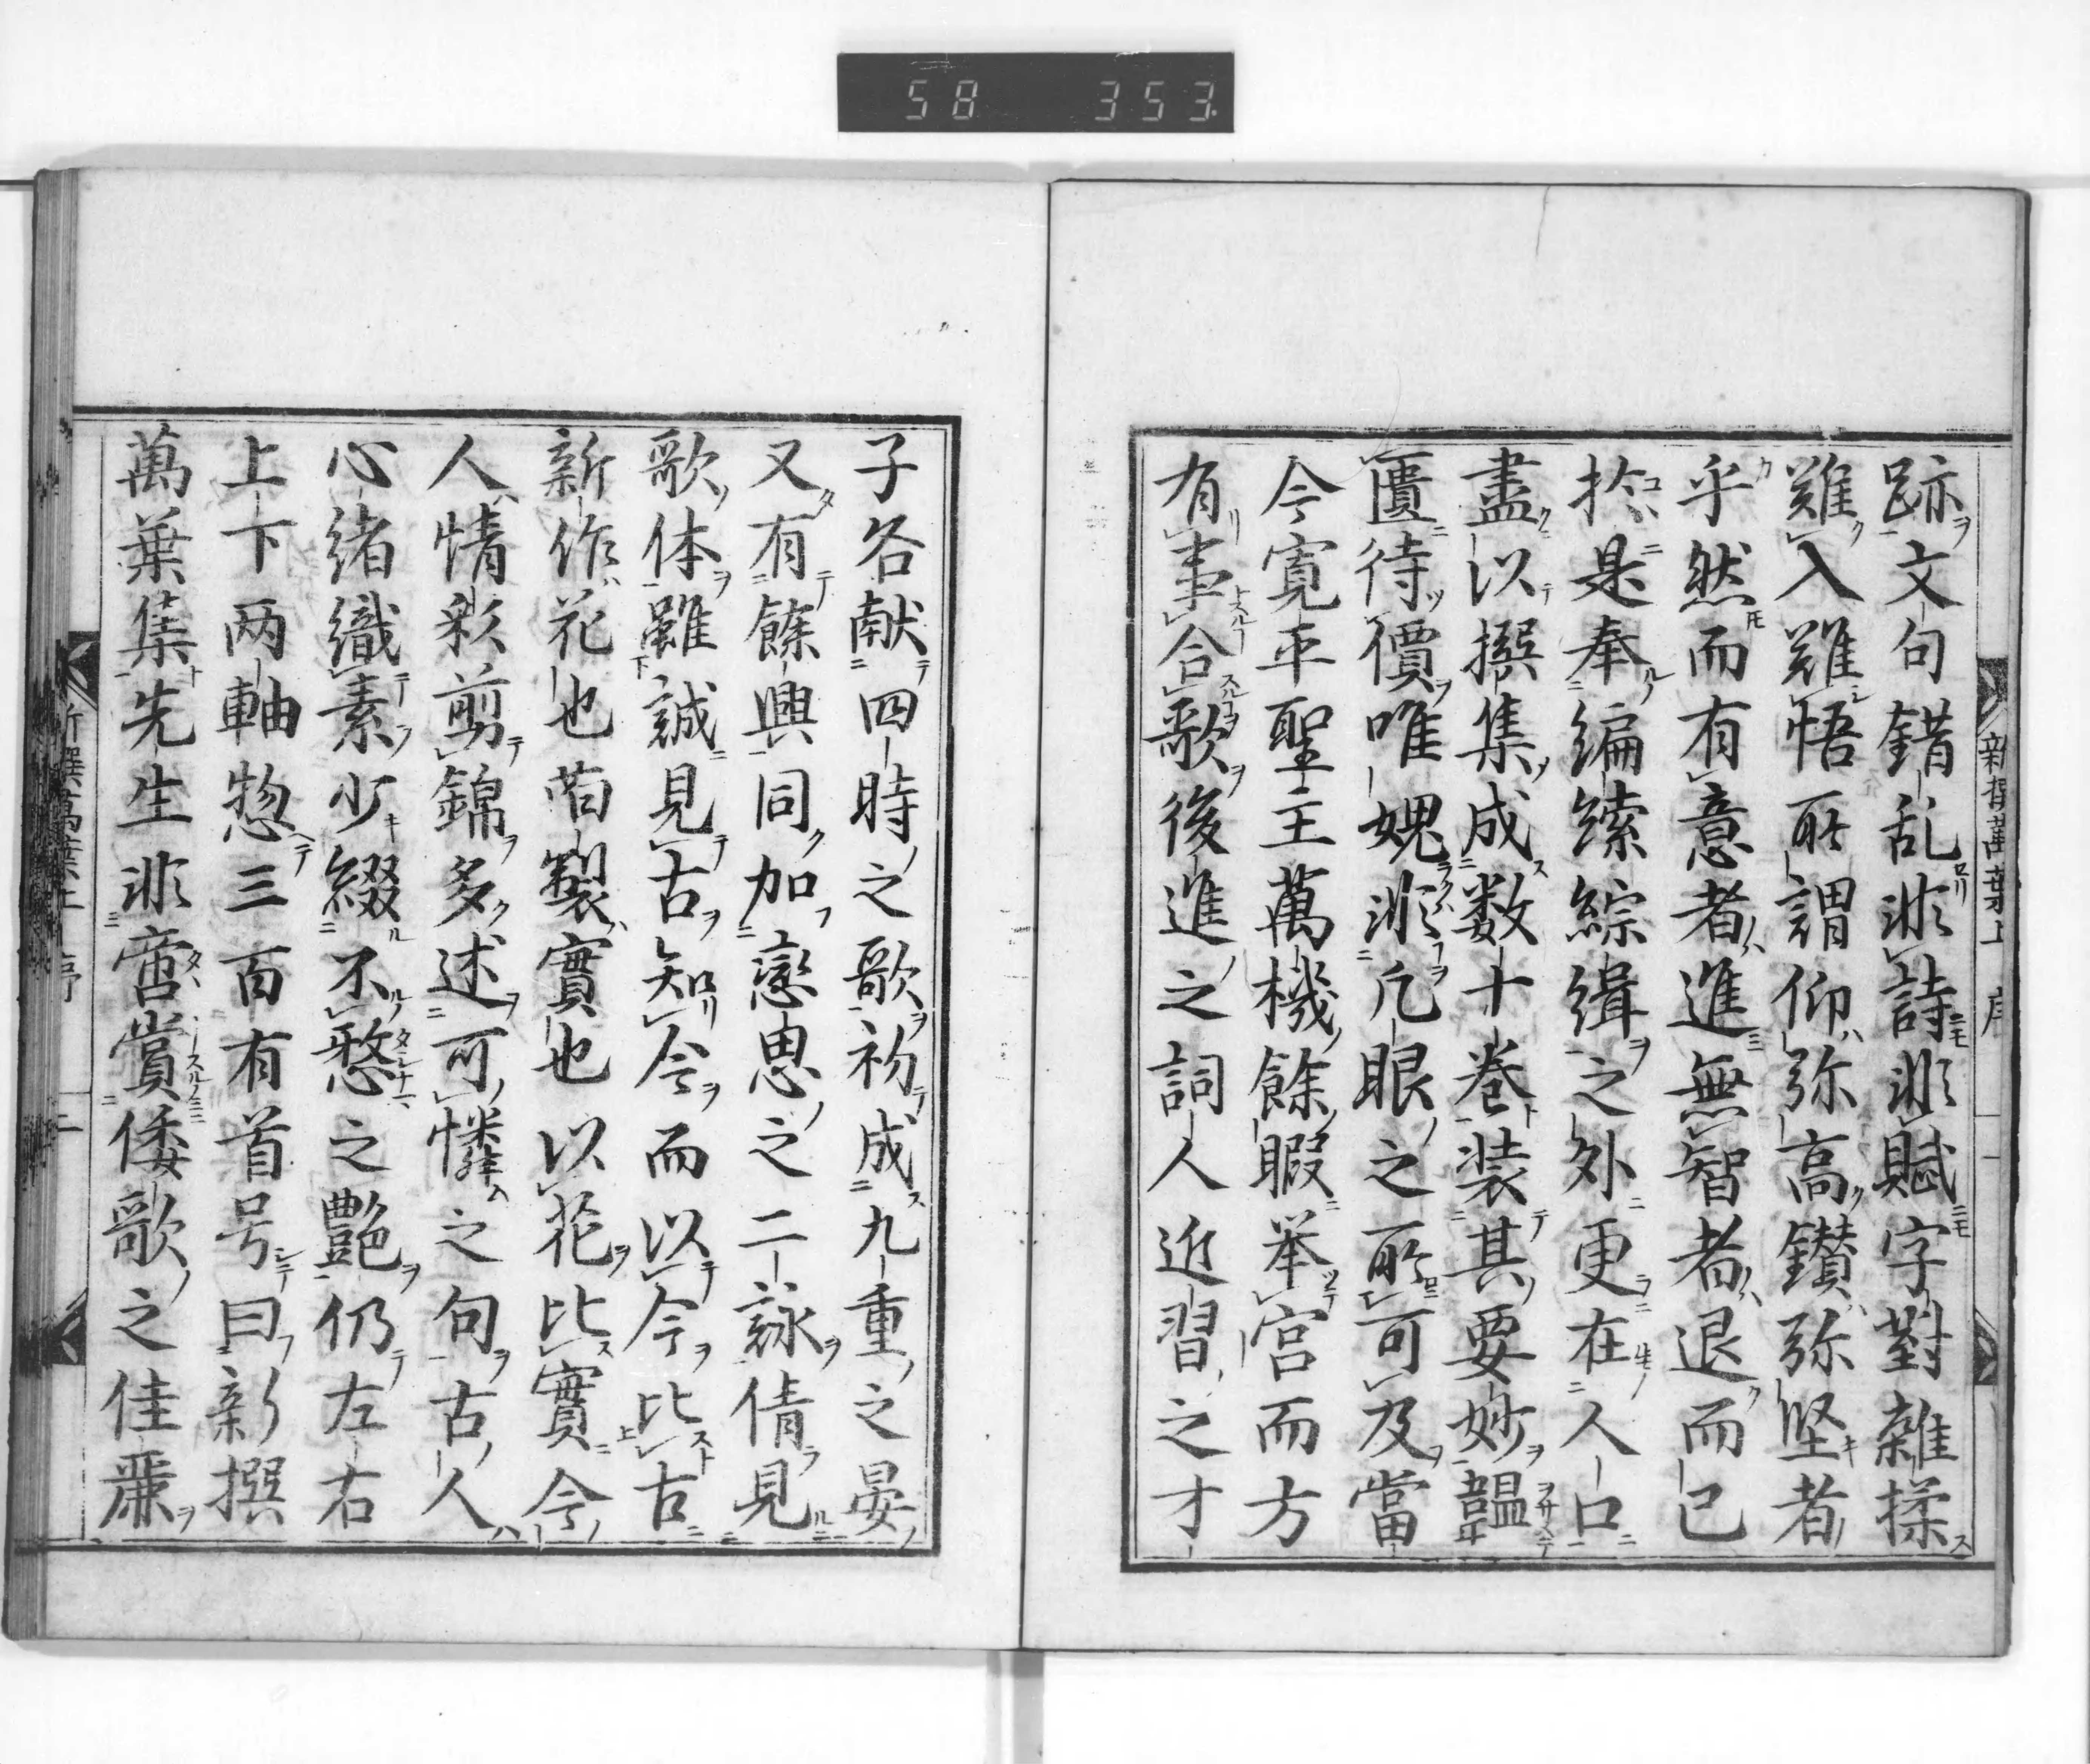 58 353
新撰萬葉上 序 一
跡文句錯乱非詩非賦字對雜揉
難入難悟所謂仰弥高鑚弥堅者
乎然而有意者進無智者退而已
於是奉編纑綜緝之外更在人口
盡以撰集成数十巻装其要妙韞
匱待價唯媿非凡眼之所可及當
今寛平聖主萬機餘暇举宮而方
有事合歌後進之詞人近習之才
子各献四時之歌初成九重之宴
又有餘興同加戀思之二詠倩見
歌体雖誠見古知今而以今比古
新作花也舊製實也以花比實今
人情彩剪錦多述可憐之句古人
心緒織素少綴不愁之艶仍左右
上下两軸惣三百有首号曰新撰
萬葉集先生非啻賞倭歌之佳麗
新撰萬葉上 序 二